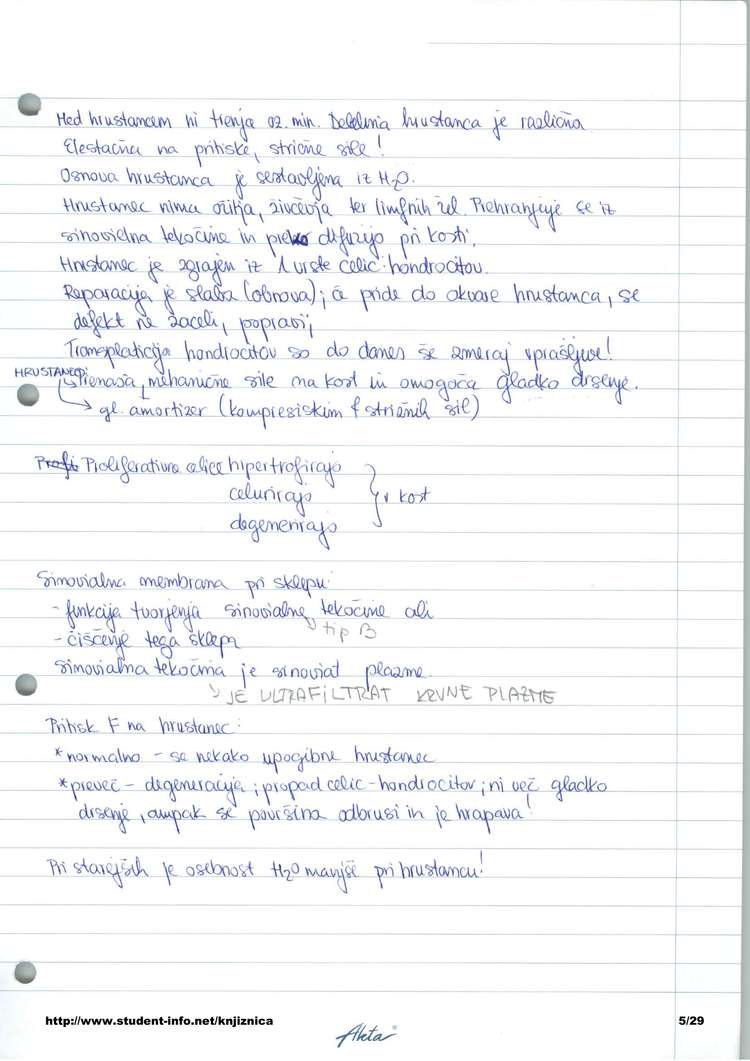 Med hrustancem ni trenja oz. min. Debelina hrustanca je različna
Elestačna na pritiske, strižne sile!
Osnova hrustanca je sestavljena iz H₂O.
Hrustanec nima ožilja, živčevja ter limfnih žil. Prehranjuje se iz
sinovielna tekočine in preko difuzijo pri kosti.
Hrustanec je zgrajen iz 1 vrste celic-hondrocitov.
Reparacija je slaba (obnova); če pride do okvare hrustanca, se
defekt ne zaceli, popravi;
Transplaticija hondrocitov so do danes še zmeraj vprašljive!
HRUSTANEC: prenaša mehanične sile na kost in omogoča gladko drsenje.
→ gl. amortizer (kompresiskim & strižnih sil)
Proliferativne celice hipertrofirajo
celurirajo
degenerirajo
v kost
Simovialna membrana pri sklepu:
- funkcija tvorjenja sinovialne tekočine ali
↘ tip B
- čiščenje tega sklepa
Sinovialna tekočina je sinoviat plazme.
↘ JE ULTRAFILTRAT KRVNE PLAZME
Pritisk F na hrustanec:
* normalno - se nekako upogibne hrustanec
* preveč - degeneracija; propad celic-hondrocitov; ni več gladko
drsenje, ampak se površina odbrusi in je hrapava!
Pri starejših je osebnost H₂O manjše pri hrustancu!
http://www.student-info.net/knjiznica
5/29
Akta